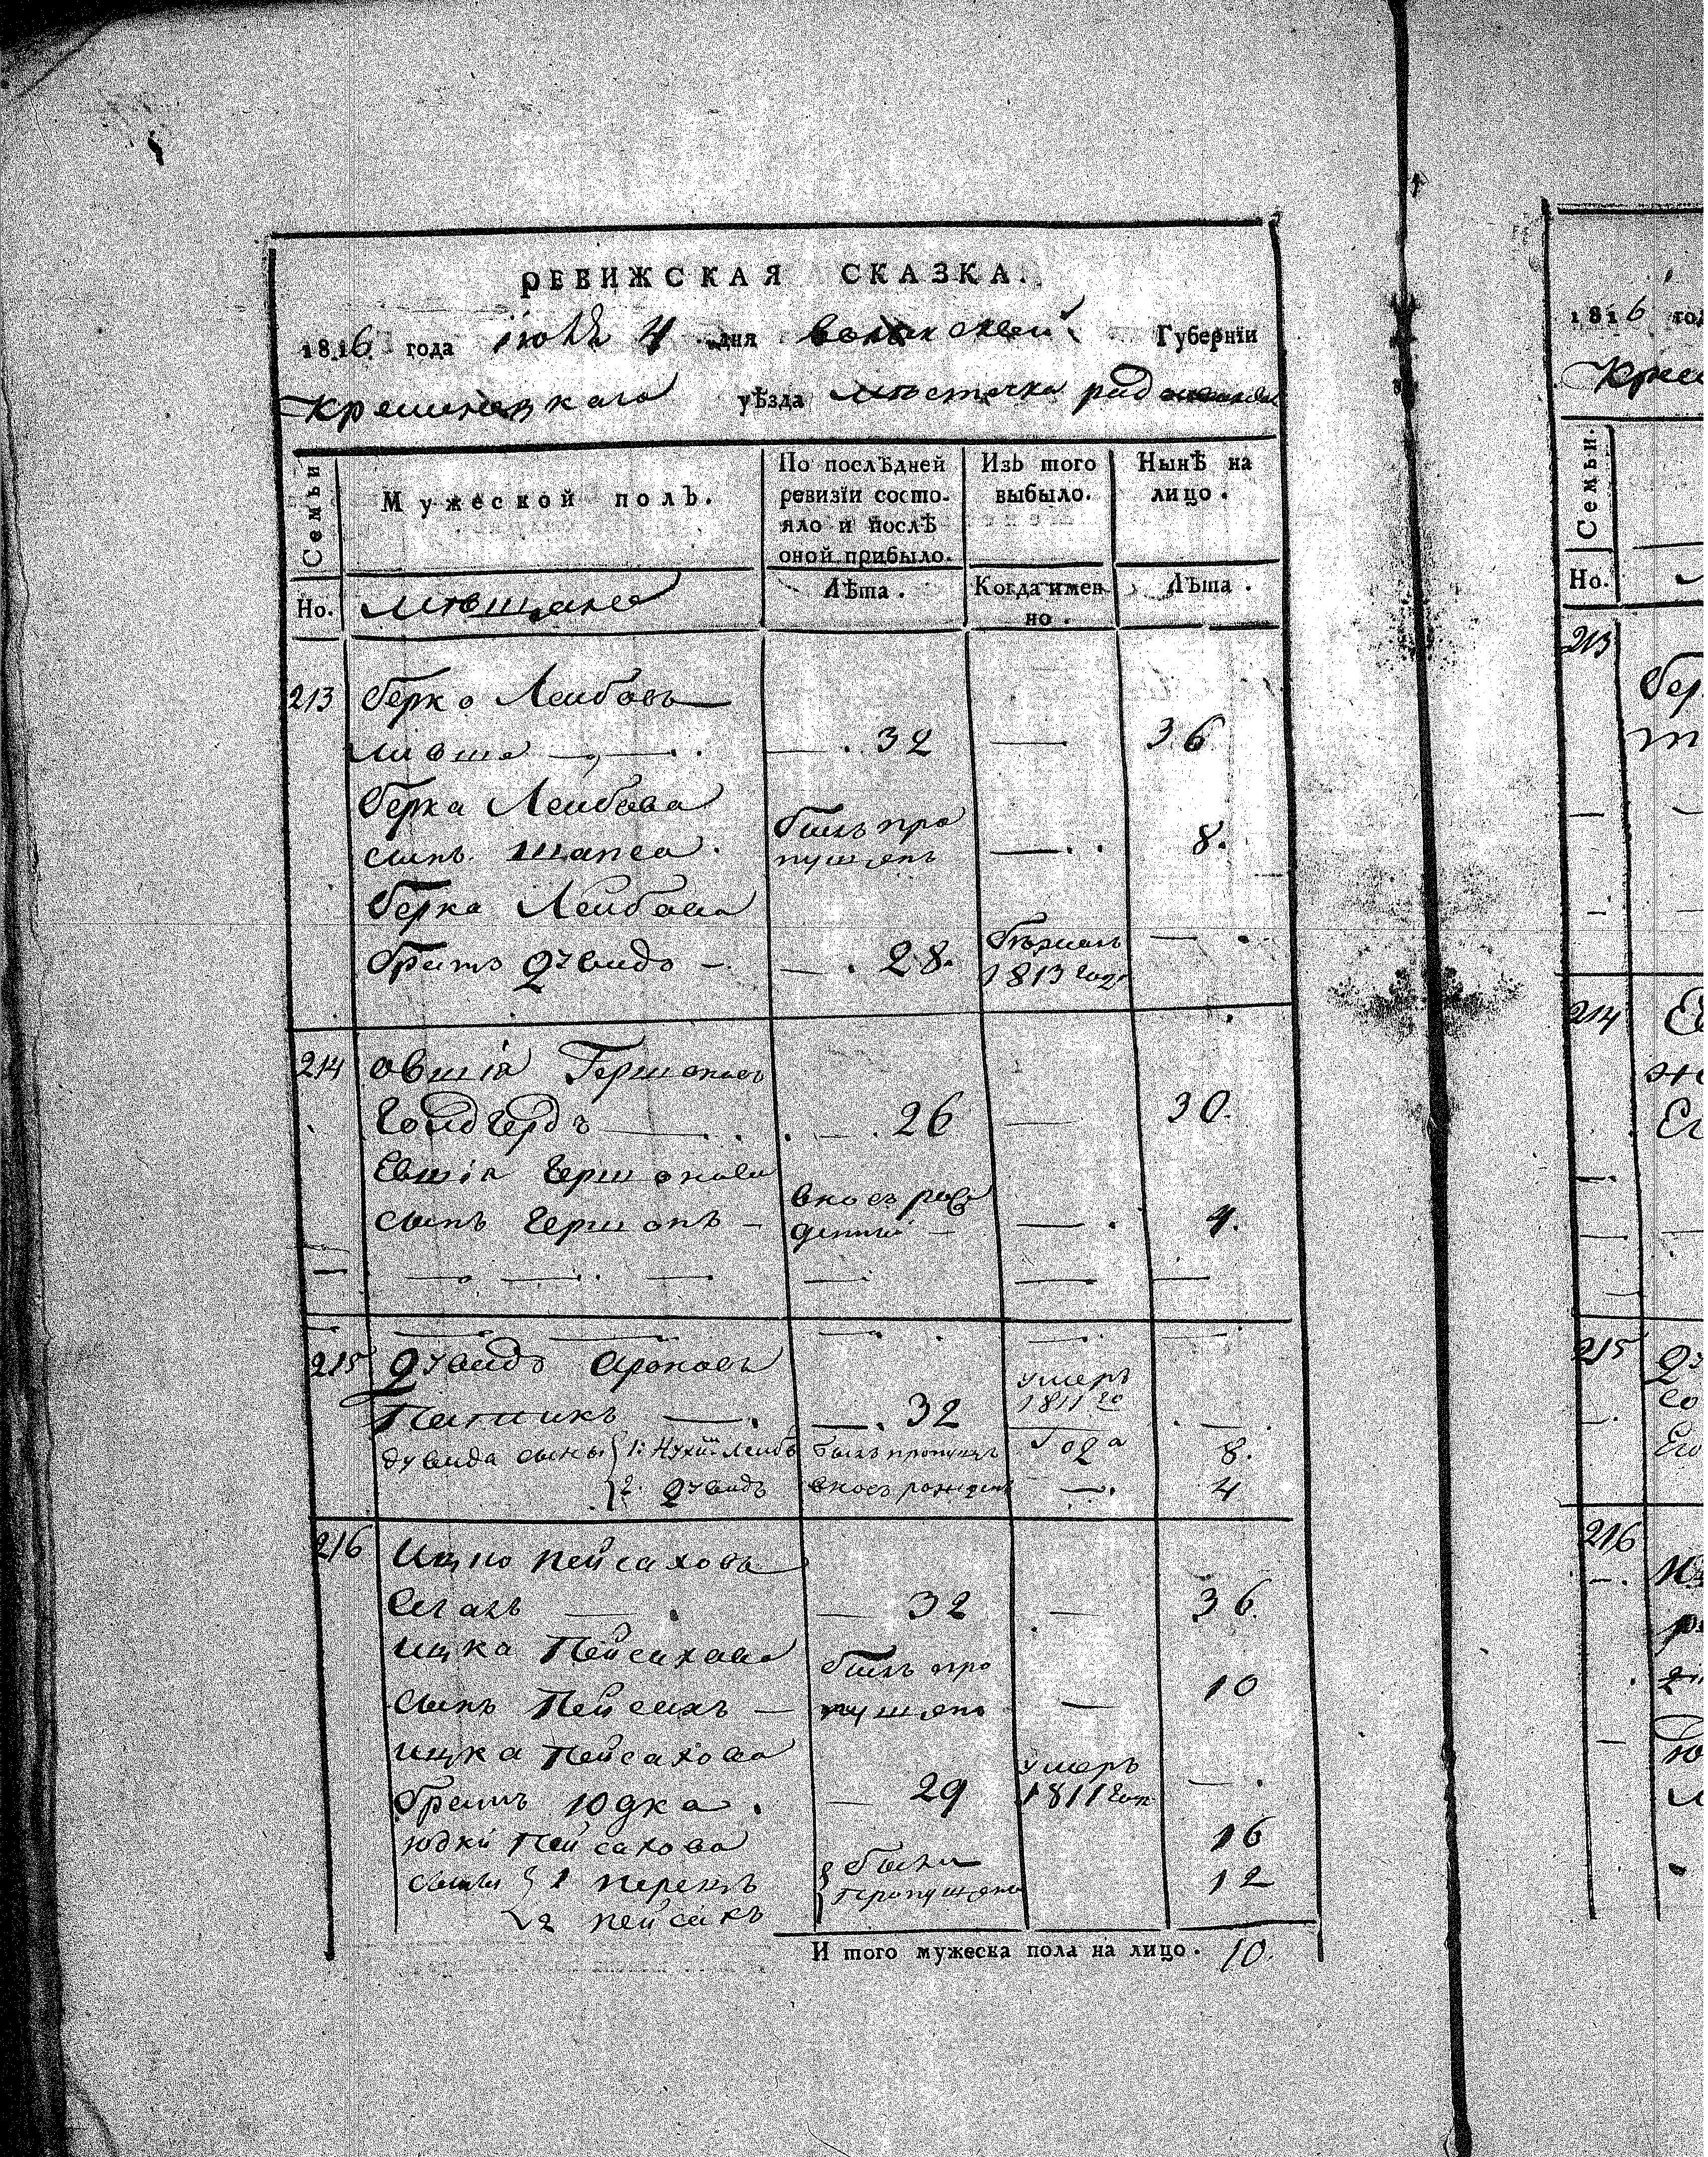 РЕВИЖСКАЯ СКАЗКА.
1816 года июля 4 дня волынской Губернїи
кременецкаго уѣзда местечка
Семьи
Мужеской полъ.
По послѣдней ревизїи состояло и послѣ оной прибыло.
Изъ того выбыло.
Нынѣ на лицо.
Но. мещане
Лѣта.
Когда имен но.
Лѣта.
213 берко Лейбовъ
— . 32 — 36
Берка Лейбова
сынъ шапса . былъ про пущенъ — . . 8.
Берка Лейбова
братъ Дувидъ — — . 28. 1813 года — .
214 овшїя Гершоновъ
— . . . — . 26 — 30.
Евшїя Гершонова
сынъ Гершонъ — вновь рож денной — — . 4.
— — — . . — — — —
— — — — . . — . . — .
215 Дувидъ Ароновъ
— . — . 32 умеръ 1811 го . — .
дувида сыны { 1: Лейбъ былъ пропущ года 8.
{ 2 Дувидъ вновь рожден — . 4
216 Ицко Пейсаховъ
Сегалъ — . — 32 — 36.
ицка Пейсахова
сынъ Пейсахъ — былъ про пущенъ — 10
ицка Пейсахова
братъ Юдка . — 29 умеръ 1811 год — .
юдки Пейсахова 16
сыны { 1 перецъ { были пропущены 12
{ 2 пейсахъ
И того мужеска пола на лицо. 10.
1816 год
Семьи.
Но.
213
Бер
214
215
216